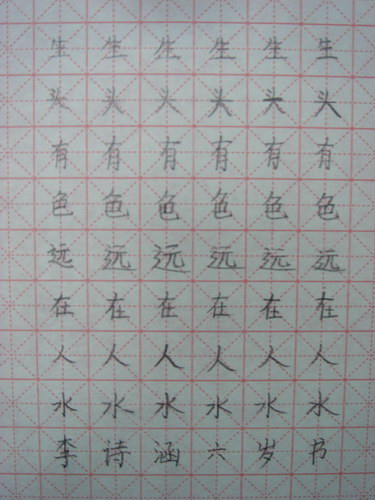 生生生生生生
头头头头头头
有有有有有有
色色色色色色
远远远远远远
在在在在在在
人人人人人人
水水水水水水
李诗涵六岁书